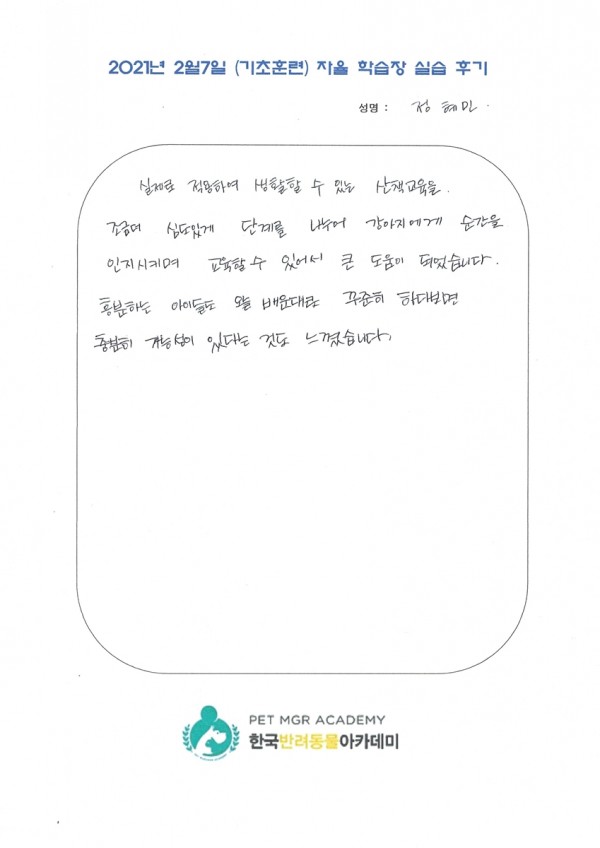 2021년 2월7일 (기초훈련) 자율 학습장 실습 후기
성명 : 정 혜민
실제로 적용하여 생활할 수 있는 산책교육들.
조금더 심도있게 단계를 나누어 강아지에게 순간을
인지시키며 교육할 수 있어서 큰 도움이 되었습니다.
흥분하는 아이들도 오늘 배운대로 꾸준히 하다보면
충분히 가능성이 있다는 것도 느꼈습니다.
PET MGR ACADEMY
한국반려동물아카데미